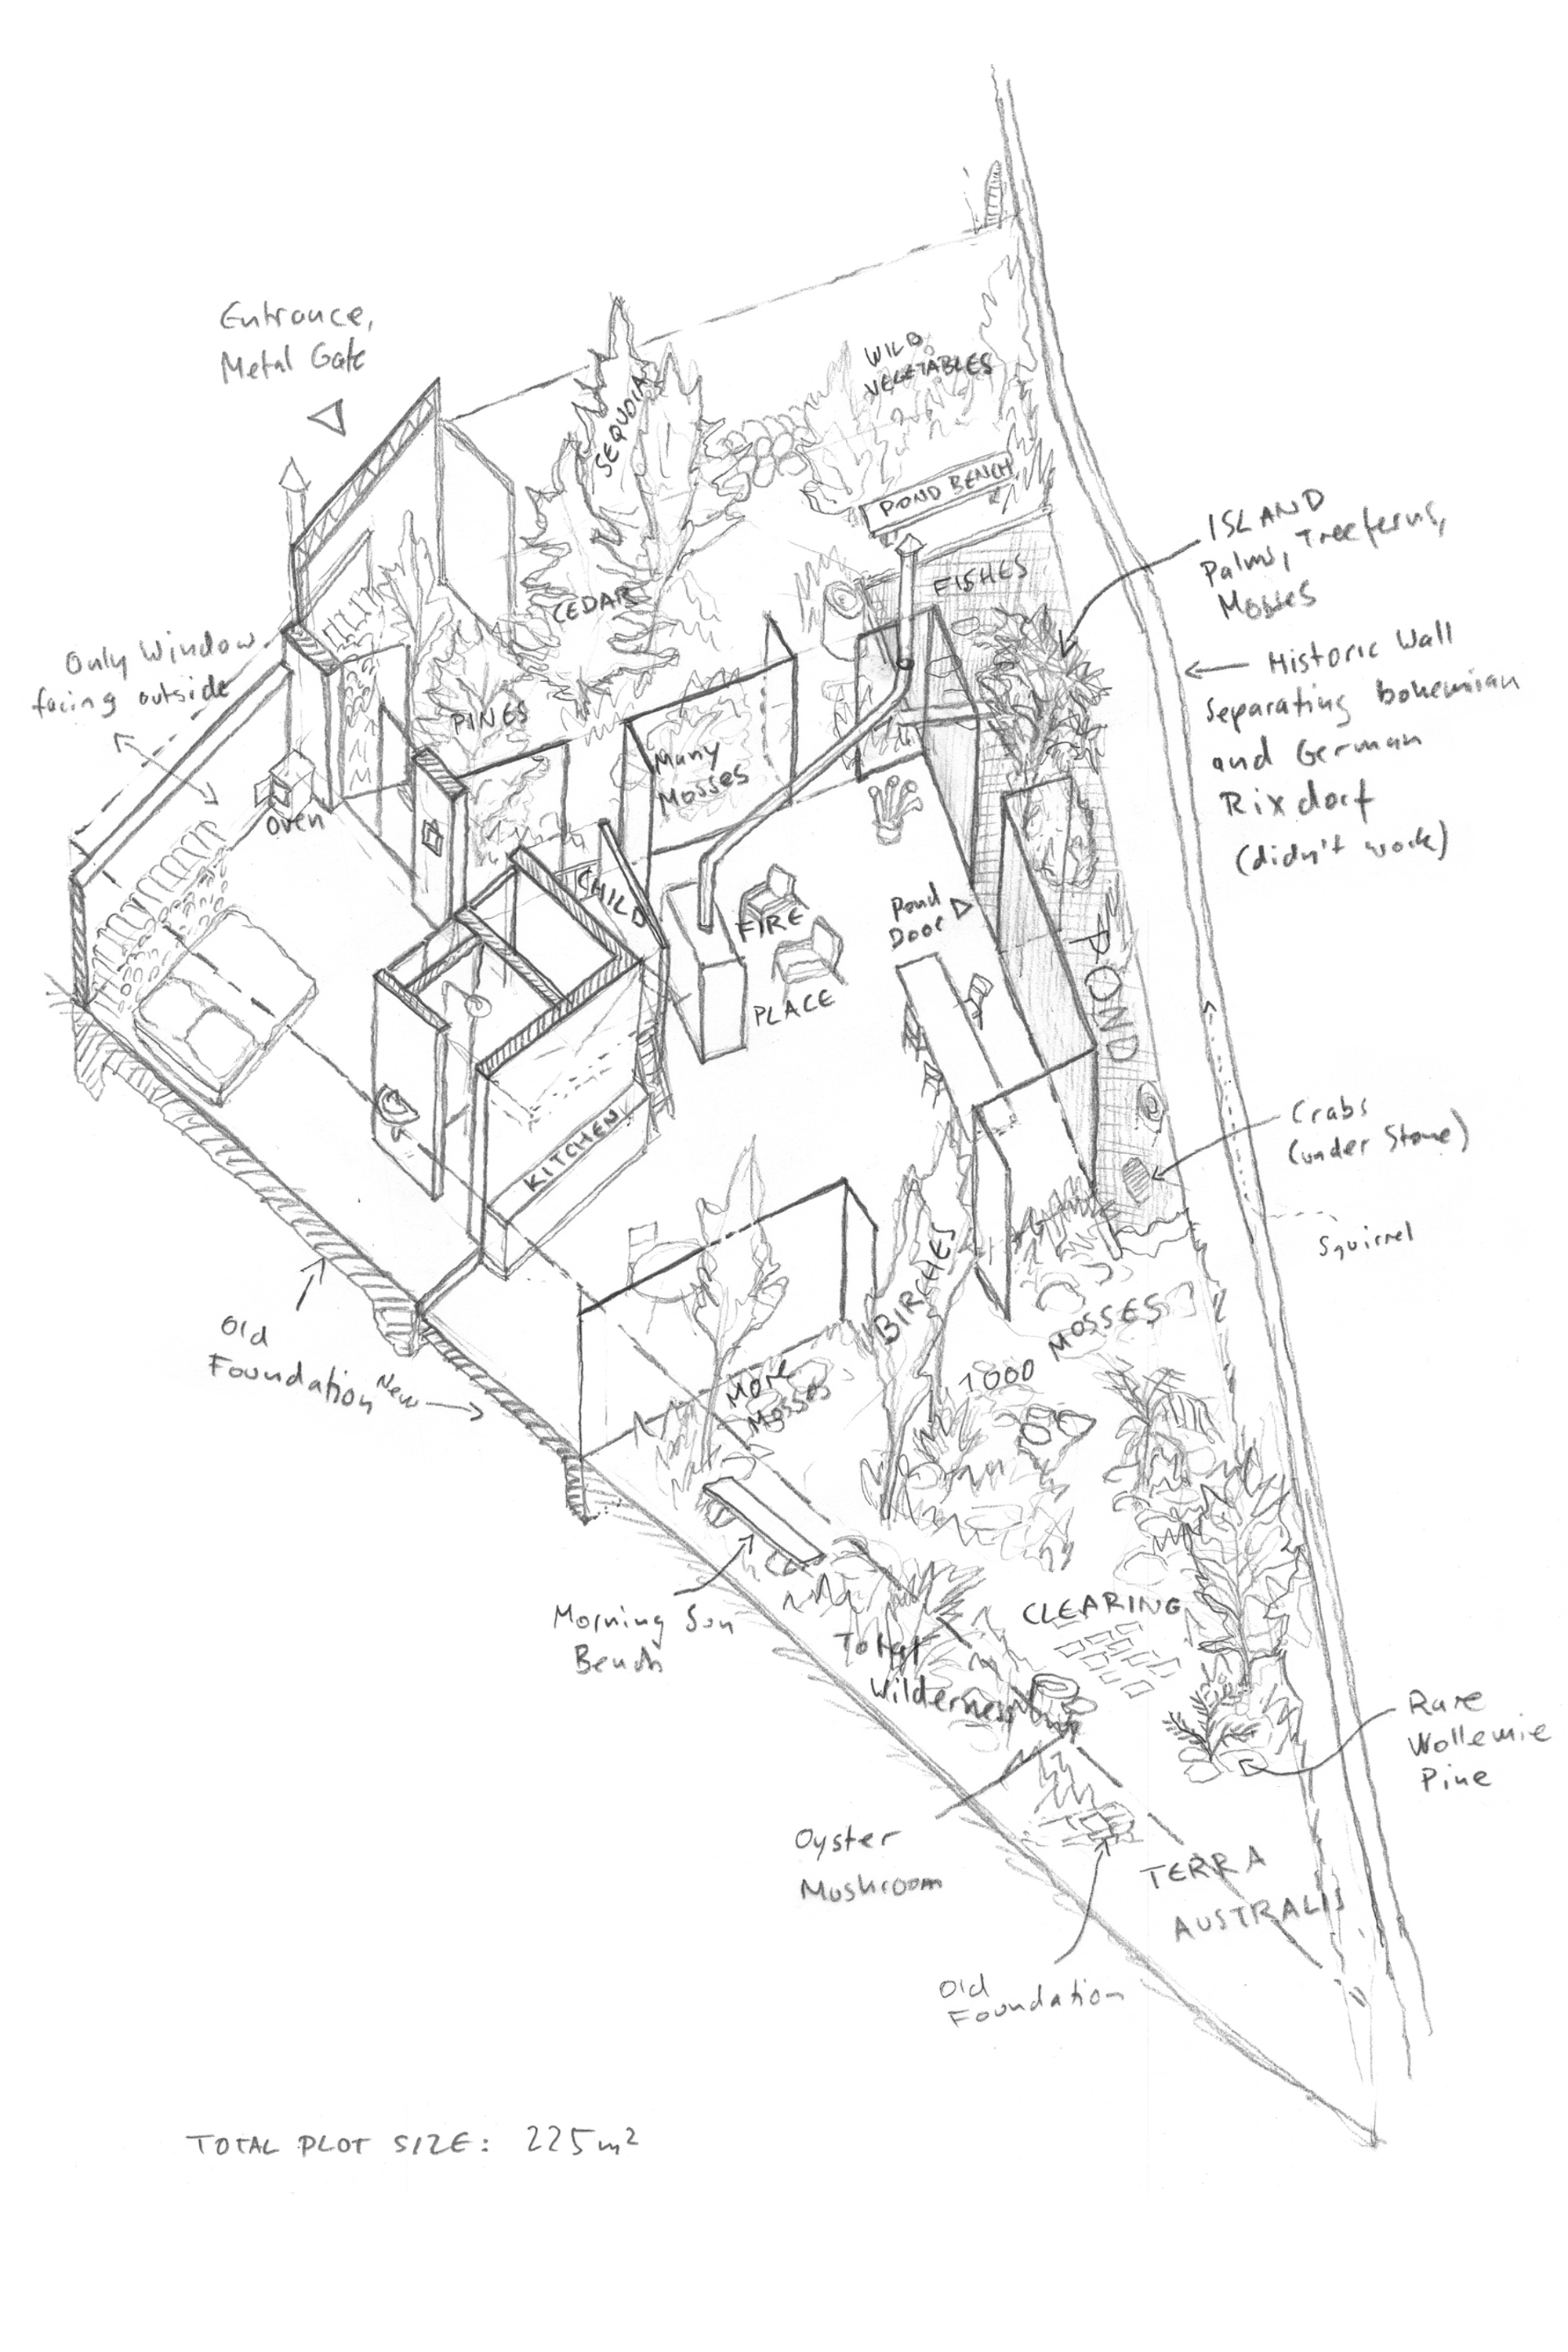 Entrance,
Metal Gate
SEQUOIA
WILD
VEGETABLES
POND BENCH
FISHES
ISLAND
Palms, Treeferns,
Mosses
CEDAR
Only Window
facing outside
PINES
Many
Mosses
Historic Wall
Separating bohemian
and German
Rixdorf
(didn't work)
Oven
CHILD
FIRE
PLACE
Pond
Door
POND
KITCHEN
Crabs
(under Stone)
Squirrel
BIRCHES
1000 MOSSES
Old
Foundation
New
More
Mosses
Morning Sun
Bench
CLEARING
Total
Wilderness
Rare
Wollemie
Pine
Oyster
Mushroom
TERRA
AUSTRALIS
Old
Foundation
TOTAL PLOT SIZE: 225m²